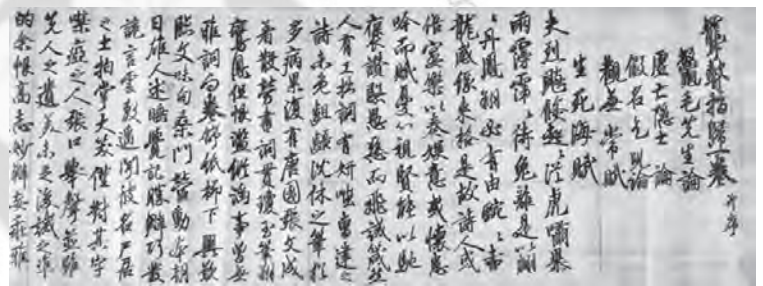 聾瞽指歸一卷 并序
鼈毛先生論
虛亡隱士論
假名乞兒論
觀無常賦
生死海賦
夫烈飈倐起從虎嘯暴
雨霶霈待兔離是以翩
翩丹鳳翔必有由蜿蜿赤
龍感緣來格是故詩人或
倍宴樂以奏娛意或懷憂
吟而賦憂心視賢能以馳
褒讚愍愚惷而飛誡箴然
人有工拙詞有妍嗤曹建之
詩未免齟齬沈休之筆猶
多病累復有唐國張文成
著散勞書詞貫瓊玉筆翔
鸞鳳但恨濫縱淫事曾無
雅詞面卷舒紙柳下興歎
臨文味句桑門營動本朝
日雄人述睡覺記勝辯巧發
詭言雲敷遙聞彼名尸居
之士拍掌大笑僅對其字
噤瘂之人張口舉聲並雖
先人之遺美未足後誡之准
的余恨高志妙辯妄乖雅